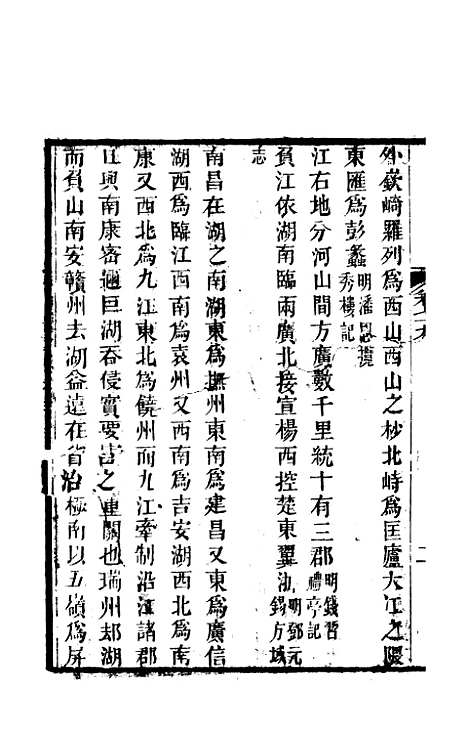 外嶔崎羅列爲西山西山之杪北峙爲匡廬大江之隈
東匯爲彭蠡明潘恩攬秀樓記
江右地分河山間方廣數千里統十有三郡明錢習禮亭記
負江依湖南臨兩廣北接宣楊西控楚東翼浙明鄧元錫方域
志
南昌在湖之南湖東爲撫州東南爲建昌又東爲廣信
湖西爲臨江西南爲袁州又西南爲吉安湖西北爲南
康又西北爲九江東北爲饒州而九江牽制沿江諸郡
且與南康密邇巨湖吞侵實要害之重關也瑞州却湖
而負山南安贛州去湖益遠在省治極南以五嶺爲屏